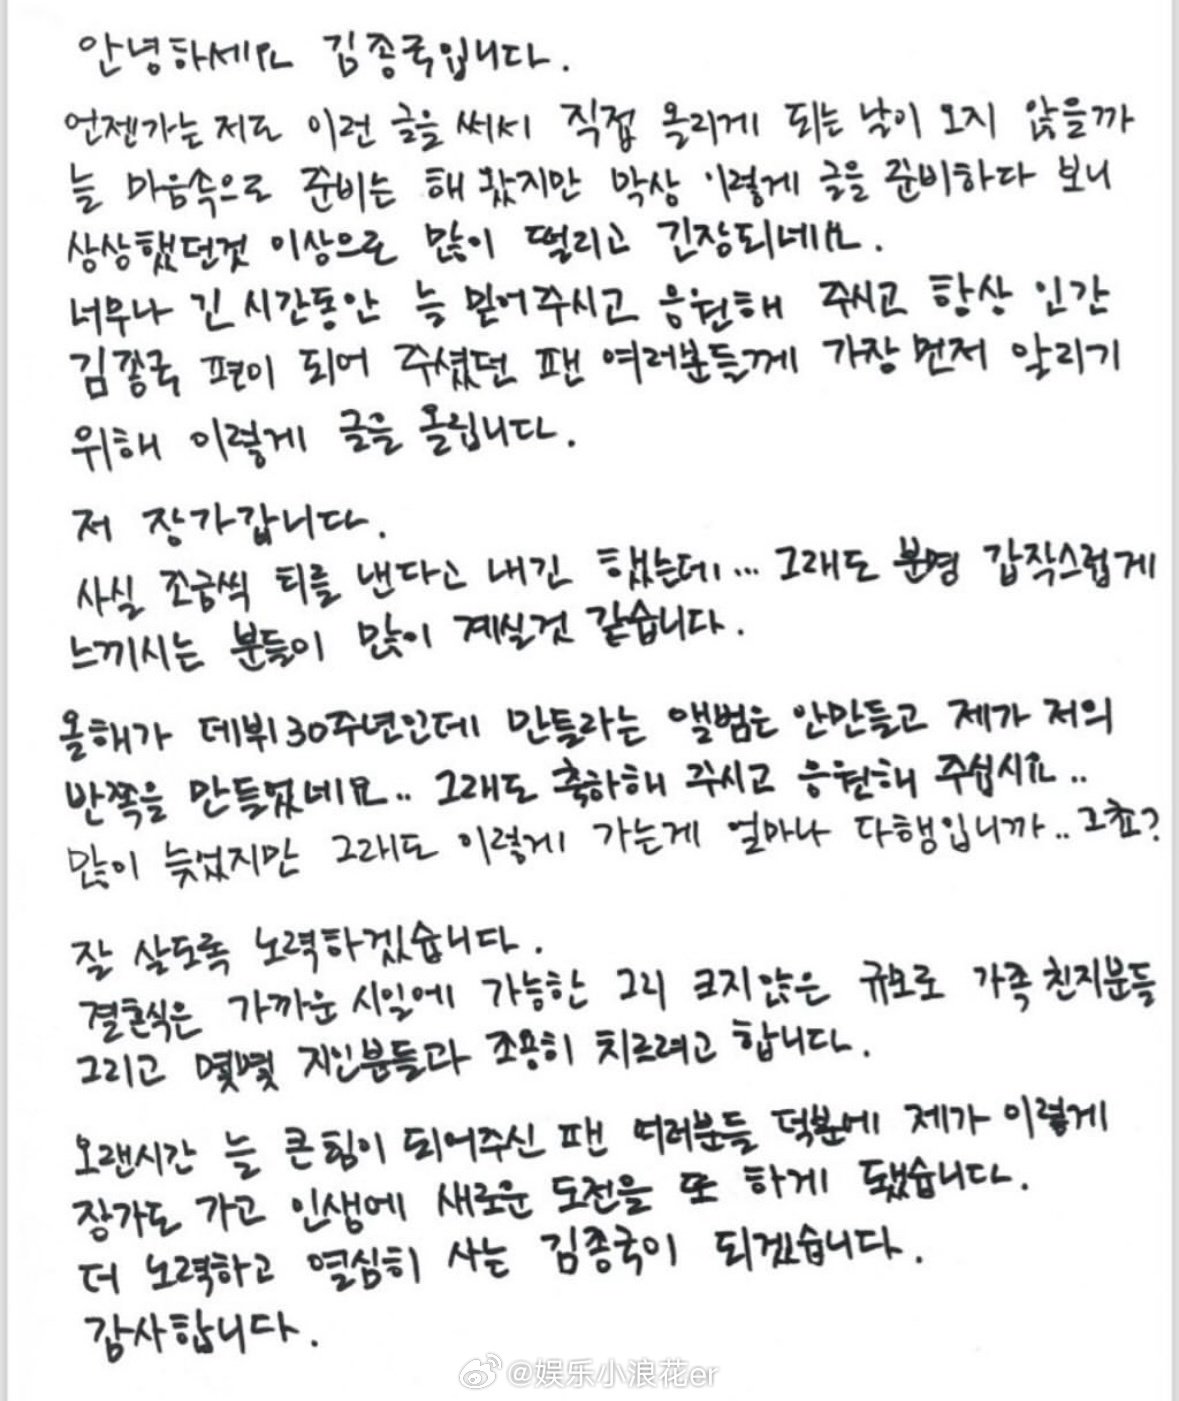 안녕하세요 김종국입니다.
언젠가는 저도 이런 글을 써서 직접 올리게 되는 날이 오지 않을까
늘 마음속으로 준비는 해 왔지만 막상 이렇게 글을 준비하다 보니
상상했던것 이상으로 많이 떨리고 긴장되네요.
너무나 긴 시간동안 늘 믿어주시고 응원해 주시고 항상 인간
김종국 편이 되어 주셨던 팬 여러분들께 가장 먼저 알리기
위해 이렇게 글을 올립니다.
저 장가갑니다.
사실 조금씩 티를 낸다고 내긴 했는데... 그래도 분명 갑작스럽게
느끼시는 분들이 많이 계실것 같습니다.
올해가 데뷔30주년인데 만들라는 앨범은 안만들고 제가 저의
반쪽을 만들었네요.. 그래도 축하해 주시고 응원해 주십시요..
많이 늦었지만 그래도 이렇게 가는게 얼마나 다행입니까.. 그쵸?
잘 살도록 노력하겠습니다.
결혼식은 가까운 시일에 가능한 그리 크지않은 규모로 가족 친지분들
그리고 몇몇 지인분들과 조용히 치르려고 합니다.
오랜시간 늘 큰 힘이 되어주신 팬 여러분들 덕분에 제가 이렇게
장가도 가고 인생에 새로운 도전을 또 하게 됐습니다.
더 노력하고 열심히 사는 김종국이 되겠습니다.
감사합니다.
@娱乐小浪花er